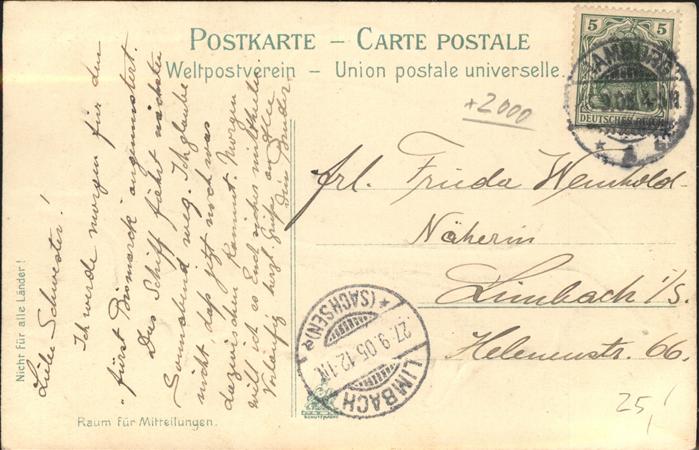 POSTKARTE – CARTE POSTALE
Weltpostverein – Union postale universelle.
5 5
DEUTSCHES REICH
HAMBURG
+2000
Liebe Schwester!
Ich werde morgen für den
"Fürst Bismarck" angemustert.
Das Schiff fährt nächsten
Sonnabend weg. Ich glaube
nicht, daß jetzt noch was
dazwischen kommt. Morgen
will ich es Euch sicher mitteilen.
Vorläufig herzl. Grüße an alle
Dein Bruder
Frl. Frieda Weinhold.
Näherin
Limbach i/s.
Helenenstr. 66.
LIMBACH
* (SACHSEN) *
27.9.05.12-1N.
25,-
Nicht für alle Länder!
Raum für Mitteilungen.